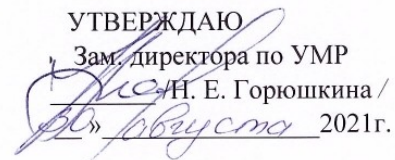 УТВЕРЖДАЮ
Зам. директора по УМР
/Н. Е. Горюшкина /
30 » августа 2021г.